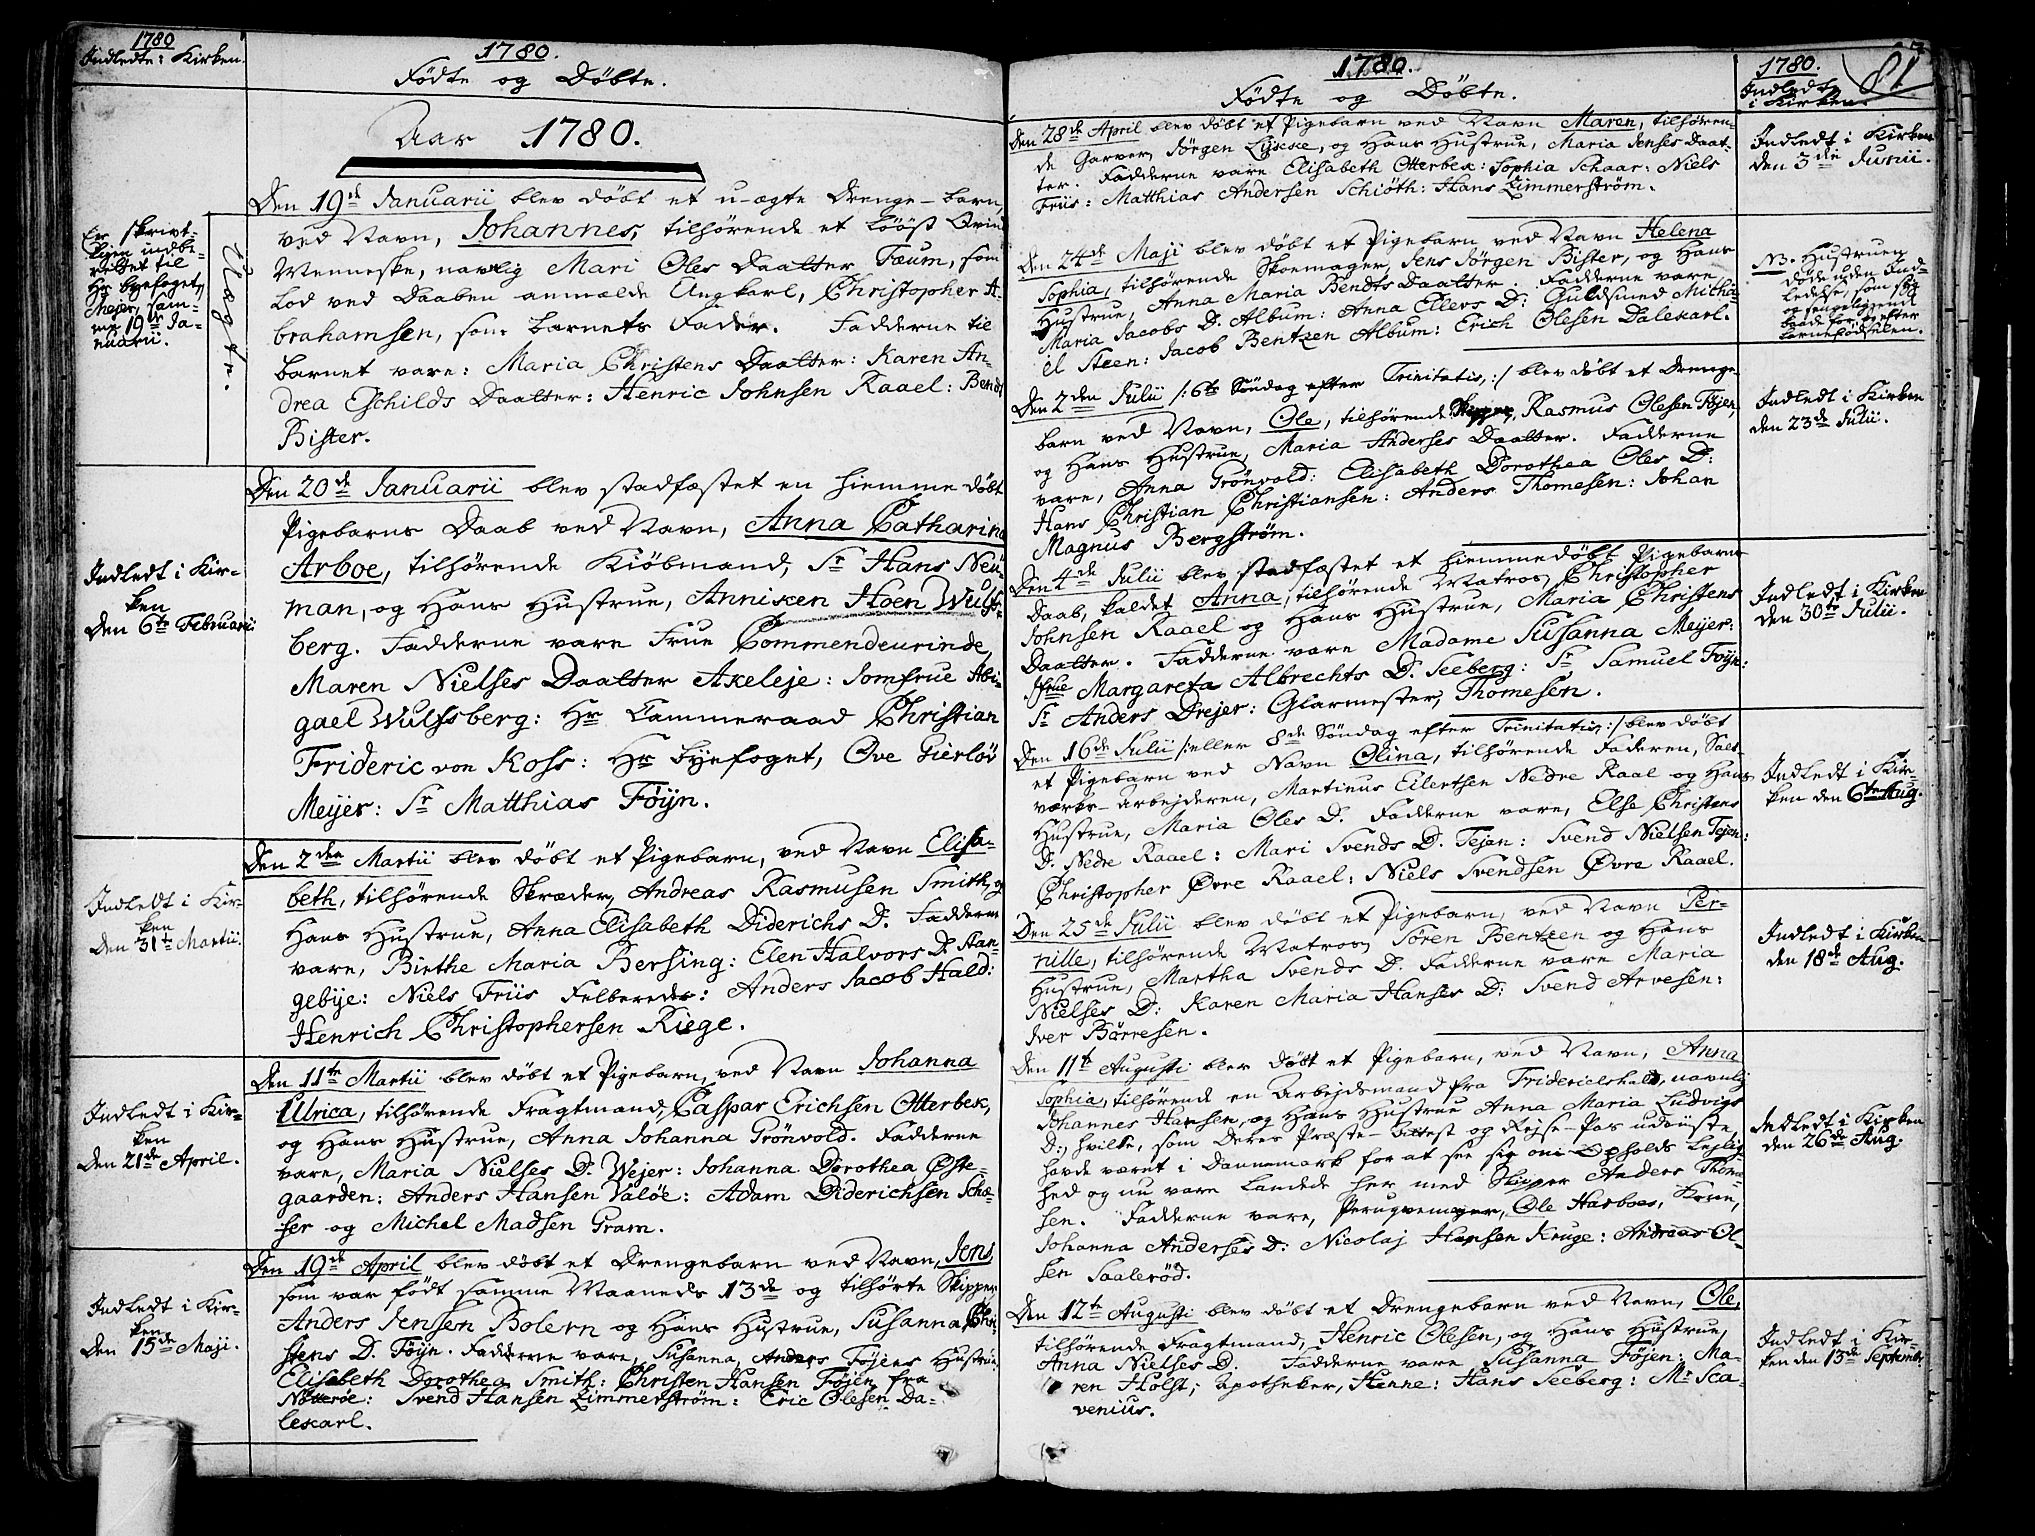 1780
Indledte i Kirken.
1780.
Födte og Döbte.
Aar 1780.
Den 19de Januarii blev döbt et u-ægte Drenge-barn,
ved Navn, Johannes, tilhörende et Löösst Qvinde
Menneske, navnlig Mari Oles Daatter Fæum, som
lod ved Daaben anmælde Ungkarl, Christopher A-
brahamsen, som barnets Fader. Fadderne til
barnet vare: Maria Christens Daatter: Karen An-
drea Eschilds Daatter: Henric Johnsen Raael: Bendt
Bister.
Er skrivt-
ligen indbe-
rettet til
Hr byefoget,
Mejer, sam-
me 19de Ja-
nuarii.
Uægte.
Den 20de Januarii blev stadfæstet en hiemme döbt
Pigebarns Daab ved Navn, Anna Catharina
Arboe, tilhörende Kiöbmand, Sr Hans Neu-
man, og Hans Hustrue, Anniken Hoen Wulfs-
berg. Fadderne vare Frue Commendeurinde,
Maren Nielses Daatter Akeleje: Jomfrue Abi-
gael Wulfsberg: Hr Cammeraad Christian
Frideric von Koss: Hr byefoget, Ove Gierlöv
Meyer: Sr Matthias Föyn.
Indledt i Kir-
ken
den 6te Februarii
Den 2den Martii blev döbt et Pigebarn, ved Navn Elisa-
beth, tilhörende Skræder, Andreas Rasmusen Smith, og
Hans Hustrue, Anna Elisabeth Diderichs D. Fadderne
vare, Birthe Maria Bersing: Elen Halvors D. Aan-
gebye: Niels Friis Felbereder: Anders Jacob Hald:
Henrich Christophersen Riege.
Indledt i Kir-
ken
den 31te Martii.
Den 11te Martii blev döbt et Pigebarn, ved Navn Johanna
Ulrica, tilhörende Fragtmand, Caspar Erichsen Otterbek,
og Hans Hustrue, Anna Johanna Grönvold. Fadderne
vare, Maria Nielses D. Wejer: Johanna Dorothea Öste-
gaarden: Anders Hansen Valöe: Adam Diderichsen Schæ-
fer og Michel Madsen Gram.
Indledt i Kir-
ken
den 21de April.
Den 19de April blev döbt et Drengebarn ved Navn, Jens
som var födt samme Maaneds 13de og tilhörte Skipper
Anders Jensen Bolern og Hans Hustrue, Susanna Chri-
stens D. Föyn. Fadderne vare, Susanna, Anders Föjens Hustrue,
Elisabeth Dorothea Smith: Christen Hansen Föjen fra
Nötteröe: Svend Hansen Zimmerström: Eric Olesen Da-
lekarl.
Indledt i Kir-
ken
den 15de Maji.
1780.
Födte og Döbte.
1780.
Indledt
i Kirken.
81
Den 28de April blev döbt et Pigebarn ved Navn Maren, tilhören-
de Garver, Jörgen Lykke, og Hans Hustrue, Maria Jenses Daat-
ter. Fadderne vare Elisabeth Otterbek: Sophia Schaar: Niels
Friis: Matthias Andersen Schiöth: Hans Zimmerström.
Indledt i Kirken
den 3die Junii.
Den 24de Maji blev döbt et Pigebarn ved Navn Helena
Sophia, tilhörende Skoemager, Jens Jörgen Bister, og Hans
Hustrue, Anna Maria Bendts Daatter. Fadderne vare,
Maria Jacobs D. Album: Anna Ellevs D: Guldsmed Micha-
el Steen: Jacob Bentzen Album: Erich Olesen Dalekarl.
NB. Hustruen
döde uden Ind-
ledelse, som syg
og sengeliggend
baade for og efter
barnefödselen.
Den 2den Julii /:6te Söndag efter Trinitatis,:/ blev döbt et Drenge-
barn ved Navn, Ole, tilhörende Skipper, Rasmus Olesen Föjen,
og Hans Hustrue, Maria Anderses Daatter. Fadderne
vare, Anna Grönvold: Elisabeth Dorothea Oles D:
Hans Christian Christiansen: Anders Thomesen: Johan
Magnus Bergström.
Indledt i Kirken
den 23de Julii.
Den 4de Julii blev stadfæstet et hiemmedöbt Pigebarns
Daab, kaldet Anna, tilhörende Matros, Christopher
Johnsen Raael og Hans Hustrue, Maria Christens
Daatter. Fadderne vare Madame Susanna Meyer:
Jfrue Margareta Albrechts D. Seeberg: Sr Samuel Föyn:
Sr Anders Drejer: Glarmester, Thomesen.
Indledt i Kirken
den 30te Julii.
Den 16de Julii /:eller 8de Söndag efter Trinitatis,:/ blev döbt
et Pigebarn ved Navn Olina, tilhörende Faderen, Salt-
værks-arbejderen, Martinus Eilertsen Nedre Raael og Hans
Hustrue, Maria Oles D. Fadderne vare, Elsa Christens
D. Nedre Raael: Mari Svends D. Tejen: Svend Nielsen Tejen:
Christopher Övre Raael: Niels Svendsen Övre Raael.
Indledt i Kir-
ken den 6te Aug.
Den 25de Julii blev döbt et Pigebarn, ved Navn Per-
nille, tilhörende Matros, Sören Bentzen og Hans
Hustrue, Martha Svends D. Fadderne vare Maria
Nielses D: Karen Maria Hanses D: Svend Arvesen:
Iver Börresen.
Indledt i Kirken
den 18de Aug.
Den 11te Augusti blev döbt et Pigebarn, ved Navn, Anna
Sophia, tilhörende en Arbejdsmand fra Fridericshald, navnlig
Johannes Hansen, og Hans Hustrue Anna Maria Ludvigs
D:, hvilke, som Deres Præste-Attest og Rejse-Pas udviiste,
havde været i Dannemark for at see sig om Opholds Lejlig-
hed og nu vare landede her med Skipper Anders Thome-
sen. Fadderne vare, Peruqvemager, Ole Harboes, Kone,
Johanna Anderses D: Nicolaj Hansen Kruge: Andreas Ol-
sen Saaleröd.
Indledt i Kirken
den 26de Aug.
Den 12te Augusti blev döbt et Drengebarn ved Navn, Ole,
tilhörende Fragtmand, Henric Olesen, og Hans Hustrue,
Anna Nielses D. Fadderne vare Susanna Föjen: Ma-
ren Holst; Apotheker, Henne: Hans Seeberg: Mr Sca-
venius.
Indledt i Kir-
ken den 13de Septembr